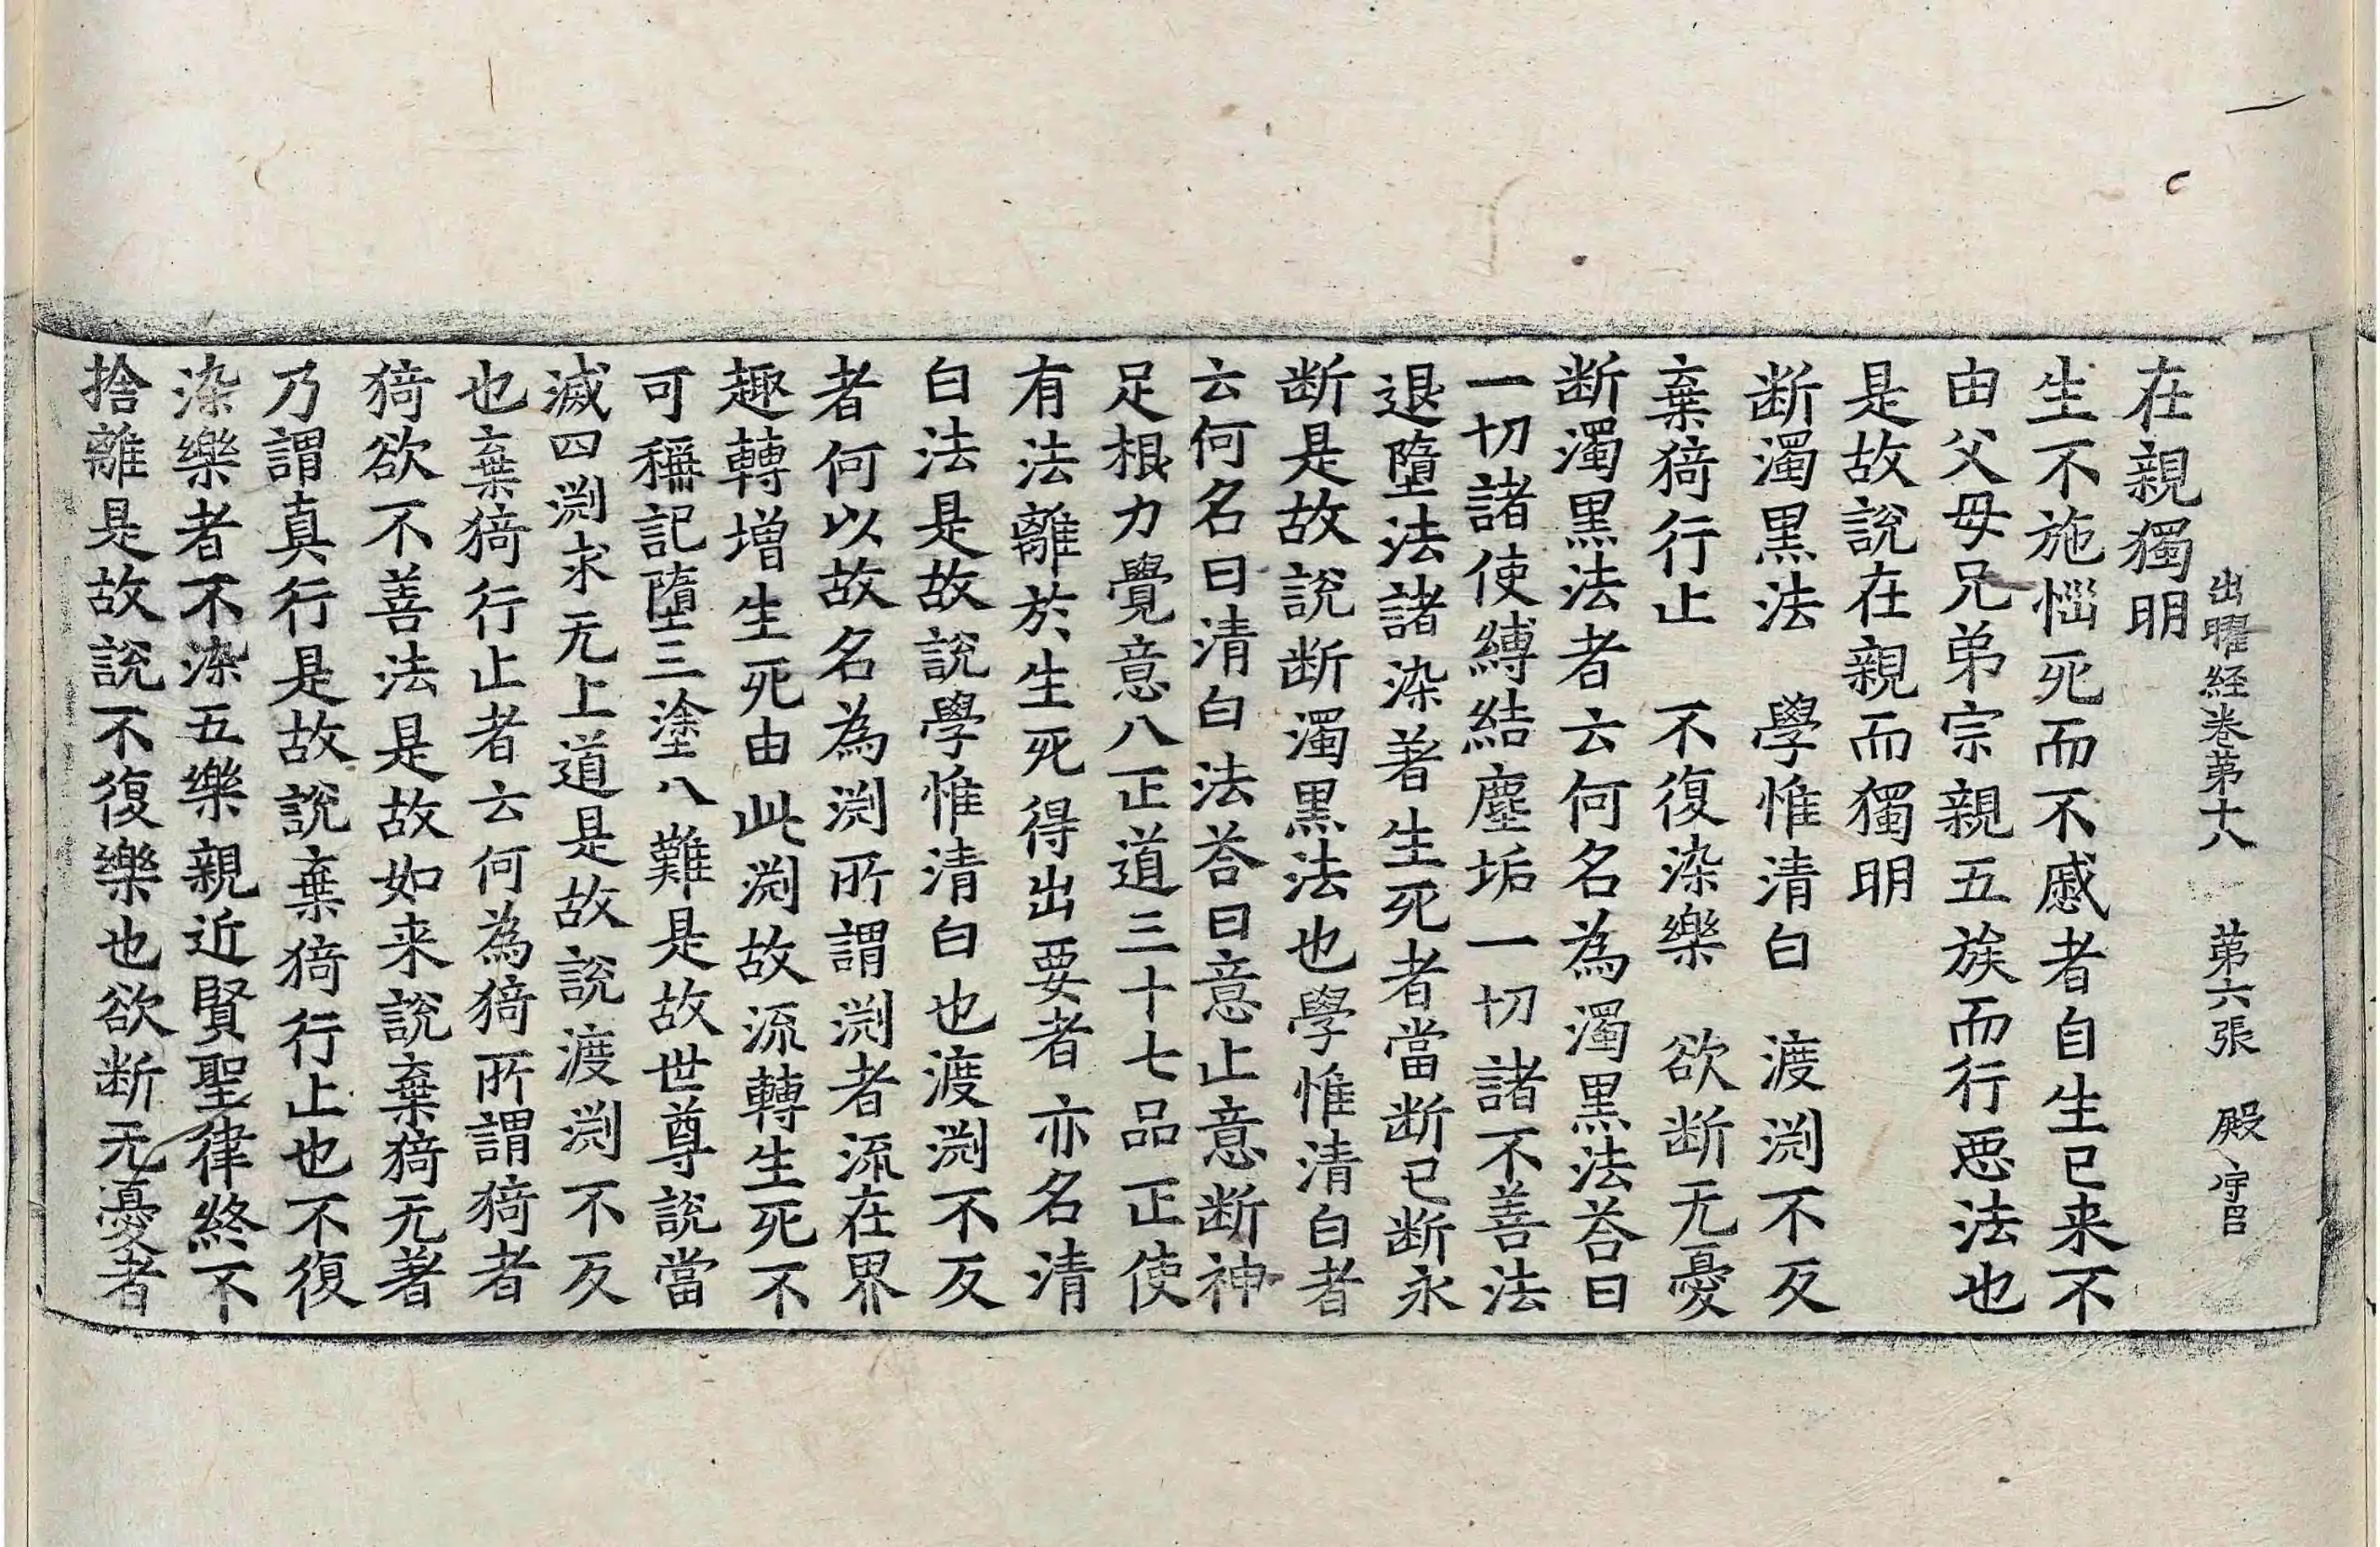 出曜経卷苐十八 苐六張 殿 守吕
在親獨明
生不施惱死而不慼者自生已来不
由父母兄弟宗親五族而行惡法也
是故說在親而獨明
断濁黒法 學惟清白 渡渕不反
棄猗行止 不復染樂 欲断无憂
断濁黒法者云何名為濁黒法荅曰
一切諸使縛結塵垢一切諸不善法
退墮法諸染著生死者當断已断永
断是故說断濁黒法也學惟清白者
云何名曰清白法荅曰意止意断神
足根力覺意八正道三十七品正使
有法離於生死得出要者亦名清
白法是故說學惟清白也渡渕不反
者何以故名為渕所謂渕者流在界
趣轉增生死由此渕故流轉生死不
可稱記墮三塗八難是故世尊說當
滅四渕求无上道是故說渡渕不反
也棄猗行止者云何為猗所謂猗者
猗欲不善法是故如来說棄猗无著
乃謂真行是故說棄猗行止也不復
染樂者不染五樂親近賢聖律終不
捨離是故說不復樂也欲断无憂者